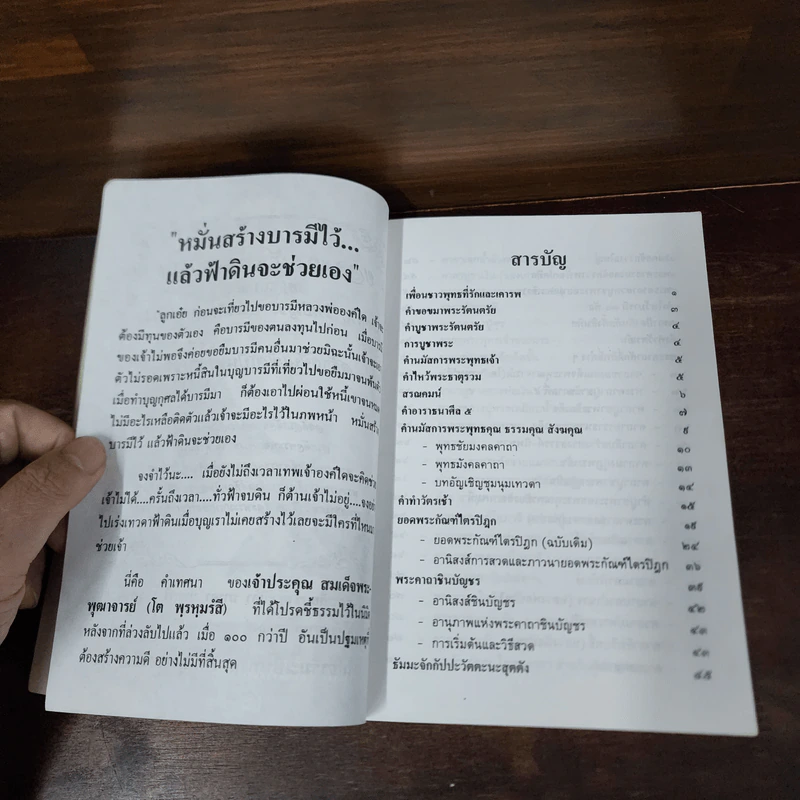 "หมั่นสร้างบารมีไว้...
แล้วฟ้าดินจะช่วยเอง"
"ลูกเอ๋ย ก่อนจะเที่ยวไปขอบารมีหลวงพ่อองค์ใด เจ้าจะ
ต้องมีทุนของตัวเอง คือบารมีของตนลงทุนไปก่อน เมื่อบารมี
ของเจ้าไม่พอจึงค่อยขอยืมบารมีคนอื่นมาช่วยมิฉะนั้นเจ้าจะเอา
ตัวไม่รอดเพราะหนี้สินในบุญบารมีที่เที่ยวไปขอยืมมาจนพ้นตัว
เมื่อทำบุญกุศลได้บารมีมา ก็ต้องเอาไปผ่อนใช้หนี้เขาจนหมด
ไม่มีอะไรเหลือติดตัวแล้วเจ้าจะมีอะไรไว้ในภพหน้า หมั่นสร้าง
บารมีไว้ แล้วฟ้าดินจะช่วยเอง
จงจำไว้นะ.... เมื่อยังไม่ถึงเวลาเทพเจ้าองค์ใดจะคิดช่วย
เจ้าไม่ได้....ครั้นถึงเวลา....ทั่วฟ้าจบดิน ก็ต้านเจ้าไม่อยู่....จงอย่า
ไปเร่งเทวดาฟ้าดินเมื่อบุญเราไม่เคยสร้างไว้เลยจะมีใครที่ไหนมา
ช่วยเจ้า
นี่คือ คำเทศนา ของเจ้าประคุณ สมเด็จพระ-
พุฒาจารย์ (โต พฺรหฺมรํสี) ที่ได้โปรดชี้ธรรมไว้ในนิมิต
หลังจากที่ล่วงลับไปแล้ว เมื่อ ๑๐๐ กว่าปี อันเป็นปฐมเหตุ
ต้องสร้างความดี อย่างไม่มีที่สิ้นสุด
สารบัญ
เพื่อนชาวพุทธที่รักและเคารพ ๑
คำขอขมาพระรัตนตรัย ๓
คำบูชาพระรัตนตรัย ๔
การบูชาพระ ๔
คำนมัสการพระพุทธเจ้า ๕
คำไหว้พระธาตุรวม ๕
สรณคมน์ ๖
คำอาราธนาศีล ๕ ๗
คำนมัสการพระพุทธคุณ ธรรมคุณ สังฆคุณ ๙
- พุทธชัยมงคลคาถา ๑๐
- พุทธมังคลคาถา ๑๓
- บทอัญเชิญชุมนุมเทวดา ๑๔
คำทำวัตรเช้า ๑๕
ยอดพระกัณฑ์ไตรปิฎก ๑๙
- ยอดพระกัณฑ์ไตรปิฎก (ฉบับเดิม) ๒๔
- อานิสงส์การสวดและภาวนายอดพระกัณฑ์ไตรปิฎก ๓๖
พระคาถาชินบัญชร ๓๙
- อานิสงส์ชินบัญชร ๔๒
- อานุภาพแห่งพระคาถาชินบัญชร ๔๓
- การเริ่มต้นและวิธีสวด ๔๓
ธัมมะจักกัปปะวัตตะนะสุตตัง ๔๕